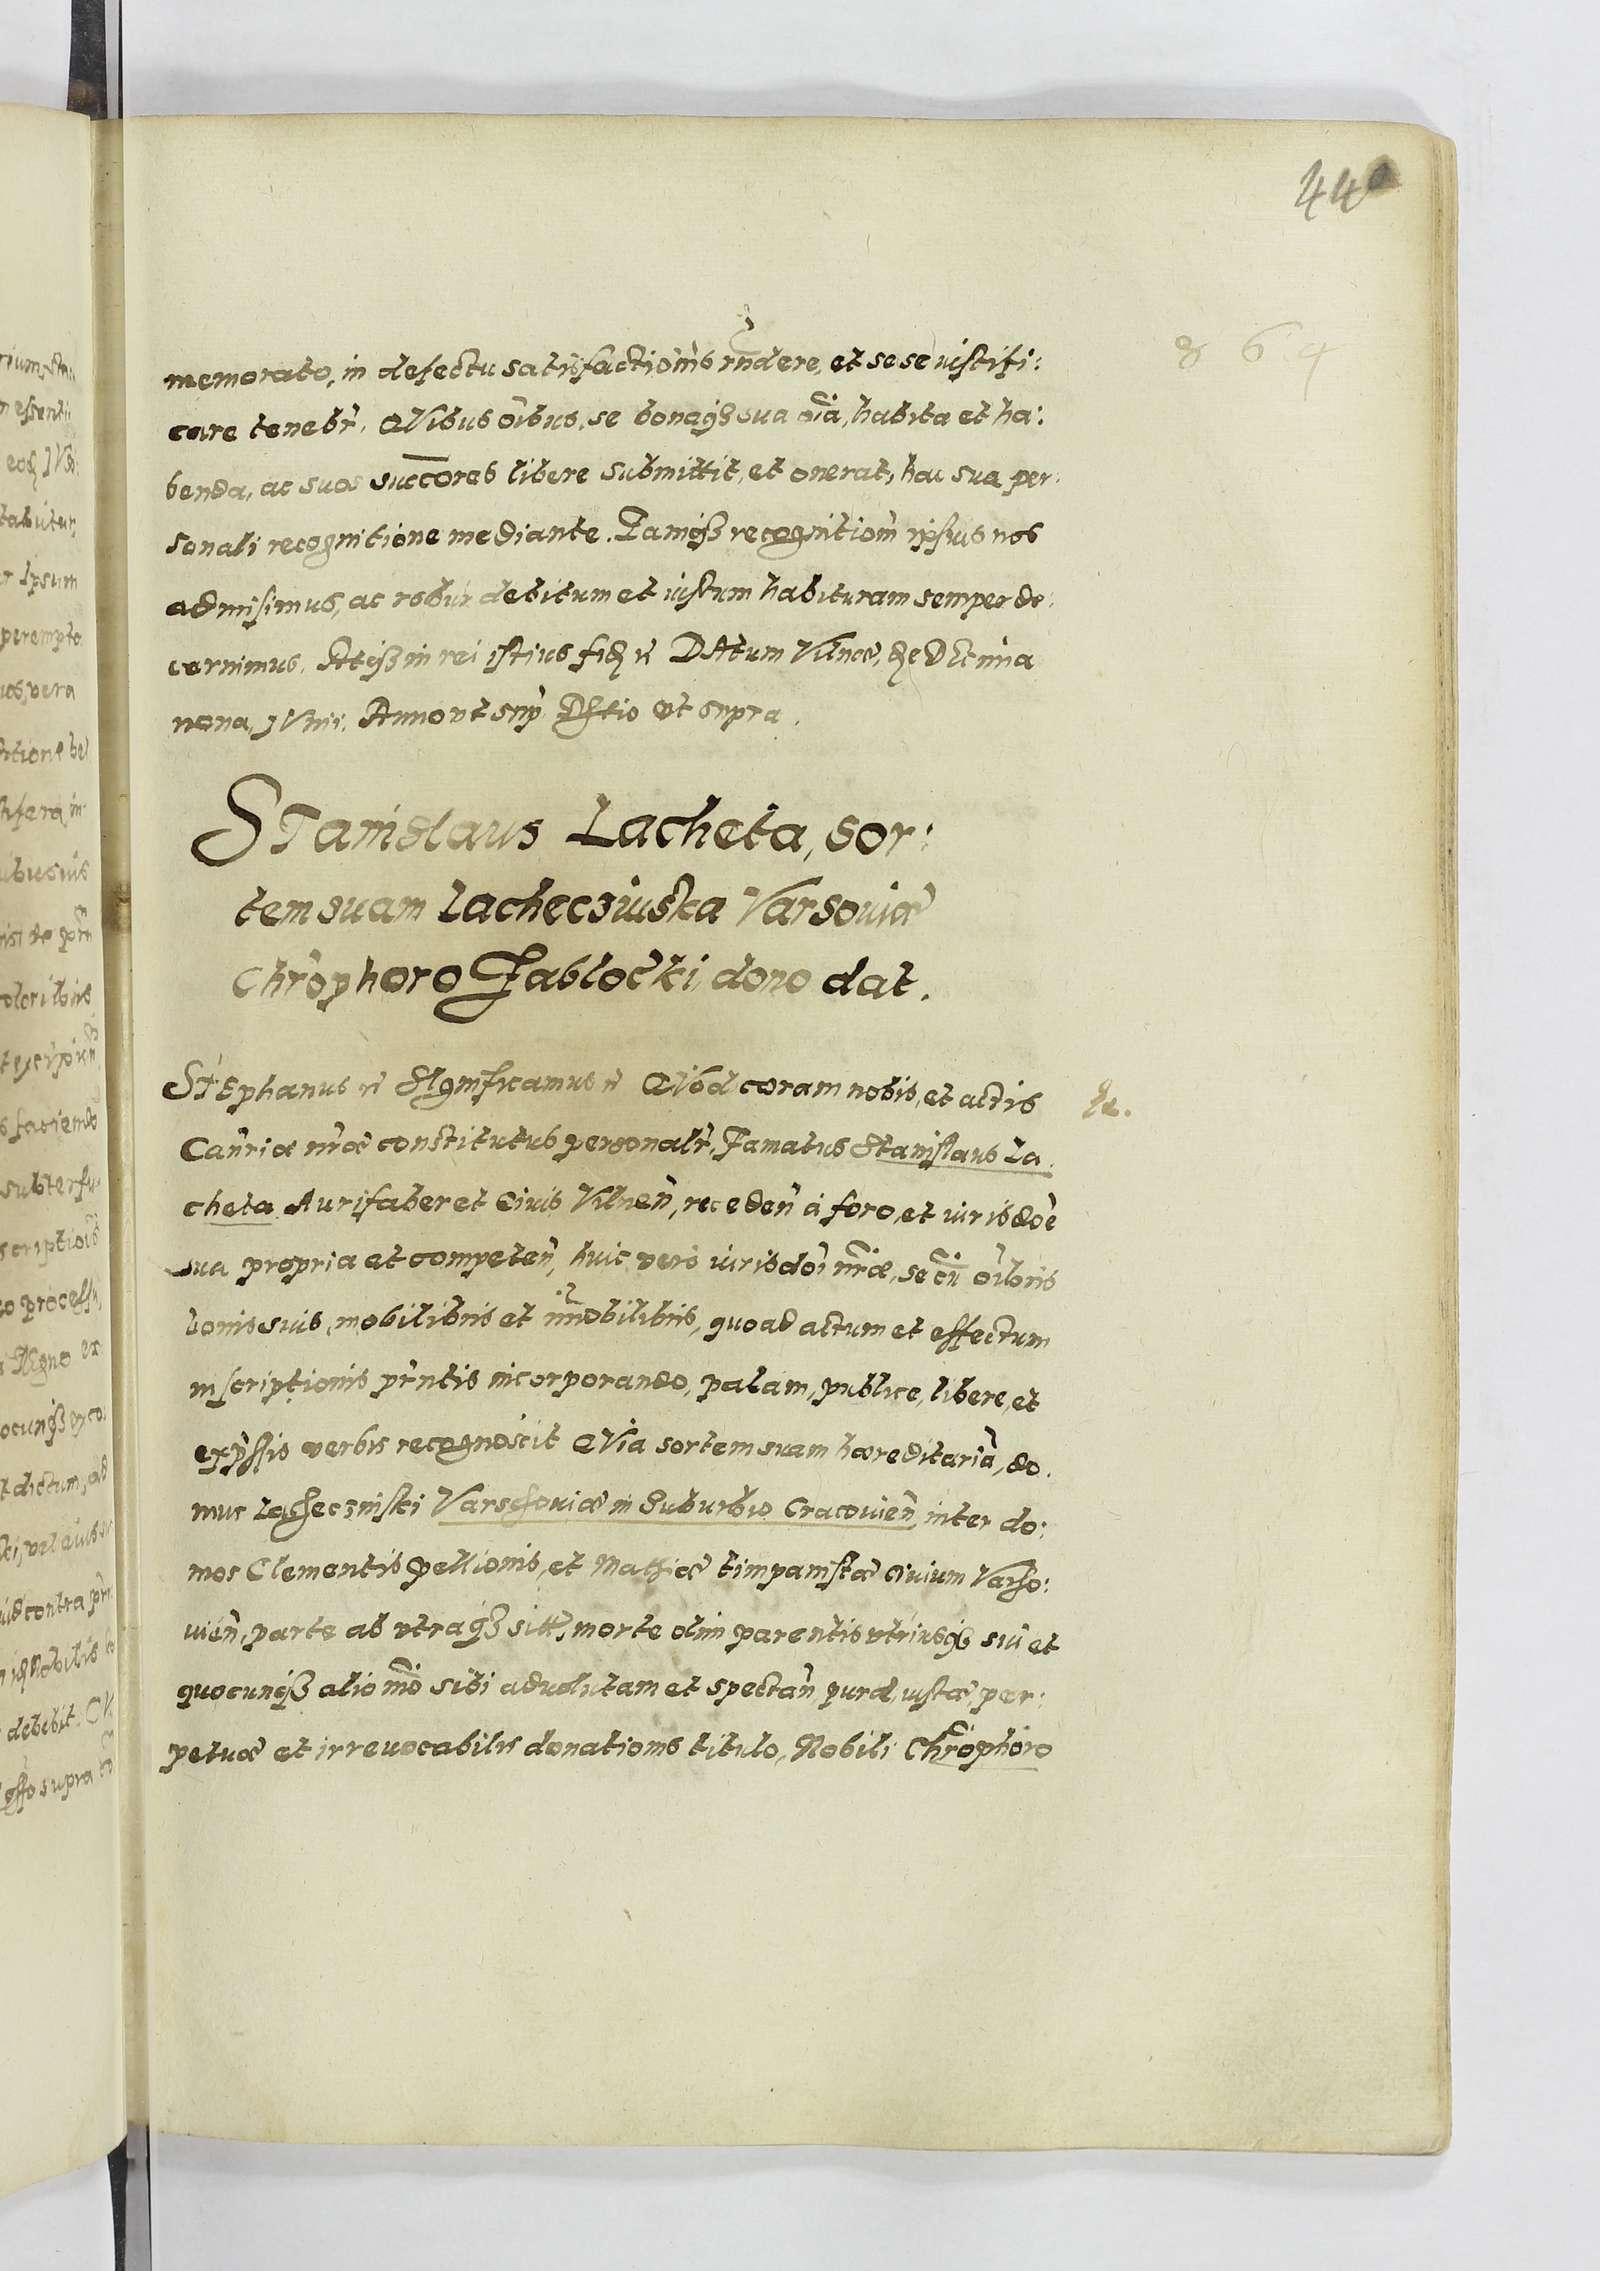 440
864
memorato, in defectu satisfactiois rñdere, et sese iustifi:
care tenebr̃. QVibus oĩbus, se bonaq3 sua oĩa, habita et ha:
benda, ac suos succcores libere submittit, et onerat, hac sua per:
sonali recognitione mediante. Tamq3 recognitiom̃ ipsius nos
admisimus, ac robur debitum et iustum habituram semper de:
cernimus. Atq3 in rei istius fid DAtum Vilnæ, die DEcima
nona, JVnii, Anno vt sup̃ Rltio vt supra.
STanislaus Lacheta, sor:
tem suam Lacheczinska Varsouiæ
Chr̃ophoro Jablocki, dono dat.
STEphanus SIgnificamus QVod coram nobis, et actis
Cañriæ nr̃æ constitutus personalr̃, Famatus Stanislaus La:
cheta Aurifaber et Ciuis Vilneñ, recedeñ á foro, et iurisdoẽ
sua propria et competeñ, huic vero iurisdoĩ nr̃æ, se cũ oĩbus
bonis suis, mobilibus et im̃obilibus, quo ad actum et effectum
inscriptionis pr̃ntis incorporando, palam, publice, libere, et
exp̃ssis verbis recognoscit QVia sortem suam hæreditariã, do:
mus Lacheczinski Varschouiæ in Suburbio Cracouieñ, inter do:
mos Clementis pellionis, et Mathiæ timpanistæ ciuium Varso:
uieñ, parte ab vtraq3 sitt, morte olim parentis vtriusq3 sui et
quocunq3 alio mõ sibi aduolutam et spectañ, puræ, iustæ, per:
petuæ et irreuocabilis donationis titulo, Nobili Chr̃ophoro